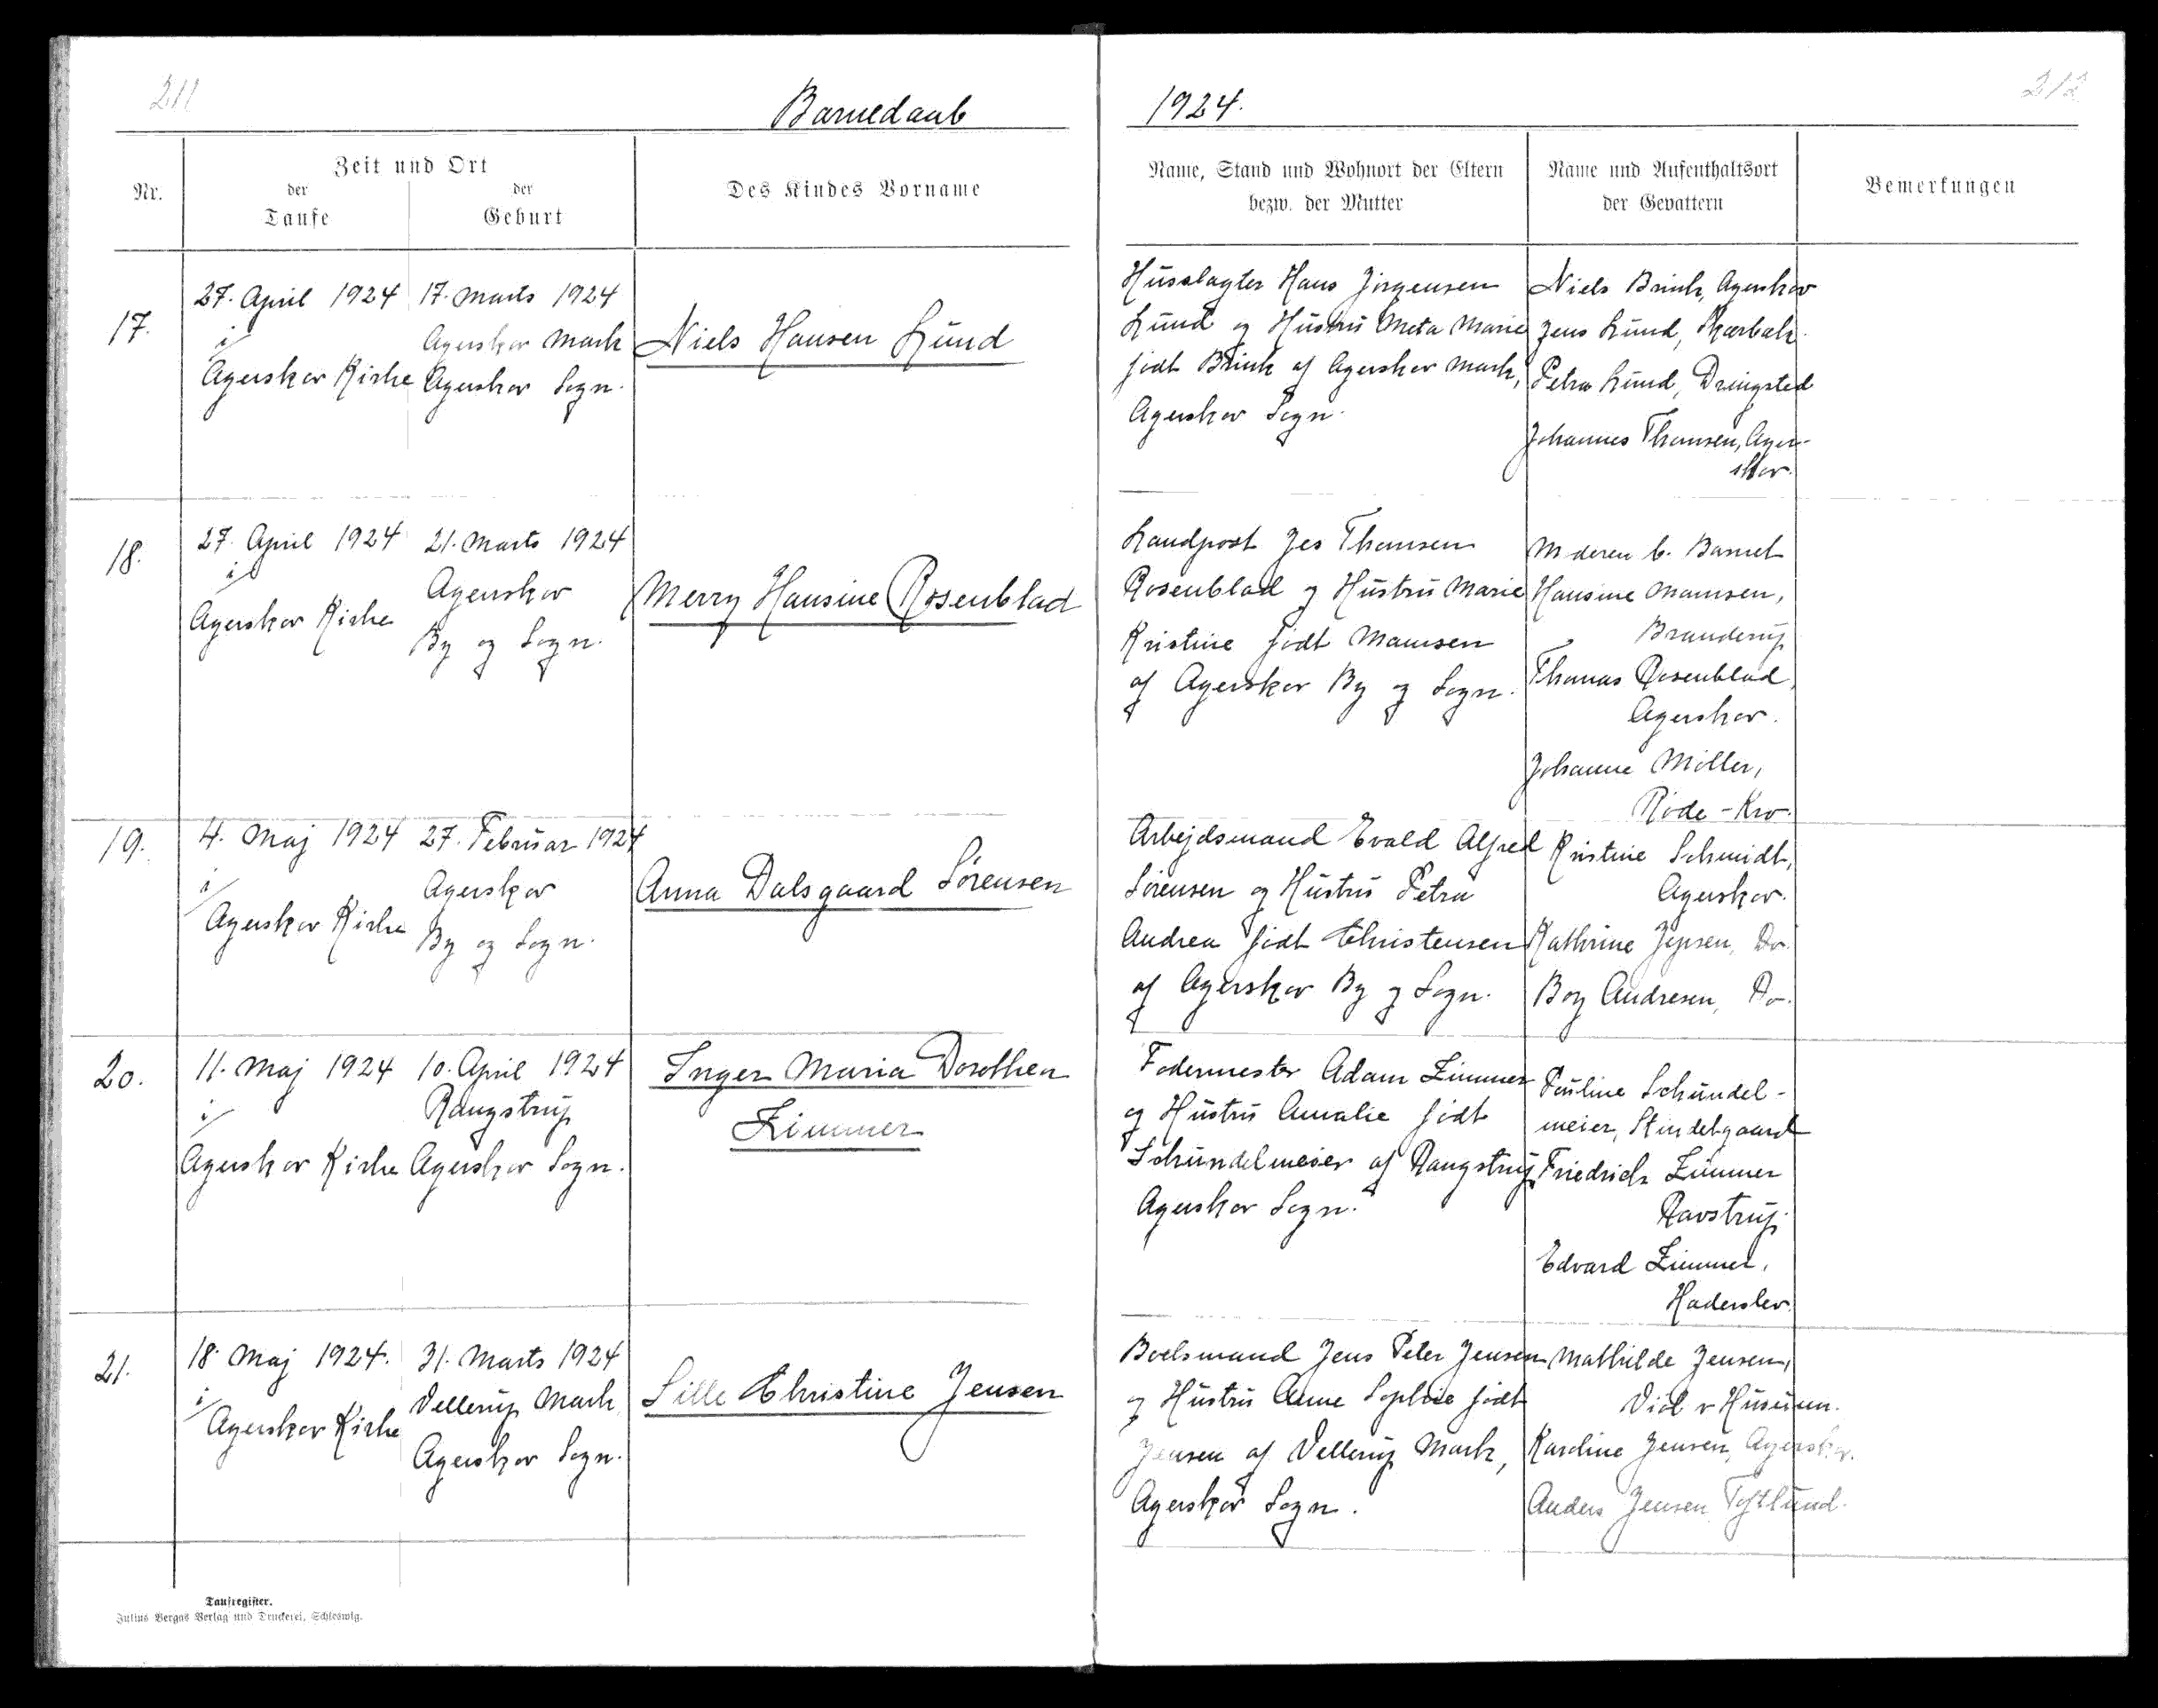 211
212
Barnedaab
1924.
Nr.
Zeit und Ort
der
Taufe
der
Geburt
Des Kindes Vorname
Name, Stand und Wohnort der Eltern
bezw. der Mutter
Name und Aufenthaltsort
der Gevattern
Bemerkungen
17.
27. April 1924
i
Agerskov Kirke
17. Marts 1924
Agerskov Mark
Agerskov Sogn.
Niels Hansen Lund
Husslagter Hans Jørgensen
Lund og Hustru Meta Marie
født Brink af Agerskov Mark,
Agerskov Sogn.
Niels Brink, Agerskov
Jens Lund, Skærbæk.
Petra Lund, Dringsted
Johannes Thomsen, Ager-
skov.
18.
27. April 1924
i
Agerskov Kirke
21. Marts 1924
Agerskov
By og Sogn.
Merry Hansine Rosenblad
Landpost Jes Thomsen
Rosenblad og Hustru Marie
Kristine født Mamsen
af Agerskov By og Sogn.
Moderen b. Barnet
Hansine Mamsen,
Branderup
Thomas Rosenblad,
Agerskov.
Johanne Møller,
Røde-Kro.
19.
4. Maj 1924
i
Agerskov Kirke
27. Februar 1924
Agerskov
By og Sogn.
Anna Dalsgaard Sørensen
Arbejdsmand Evald Alfred
Sørensen og Hustru Petra
Andrea født Christensen
af Agerskov By og Sogn.
Kristine Schmidt,
Agerskov.
Kathrine Jepsen, Do.
Boy Andresen, Do.
20.
11. Maj 1924
i
Agerskov Kirke
10. April 1924
Rangstrup
Agerskov Sogn.
Inger Maria Dorothea
Zimmer
Fodermester Adam Zimmer
og Hustru Amalie født
Schundelmeier af Rangstrup
Agerskov Sogn.
Pauline Schundel-
meier, Stindelgaard
Friedrich Zimmer
Ravstrup.
Edvard Zimmer,
Haderslev.
21.
18. Maj 1924.
i
Agerskov Kirke
31. Marts 1924
Vellerup Mark,
Agerskov Sogn.
Sille Christine Jensen
Boelsmand Jens Peter Jensen
og Hustru Anne Sophie født
Jensen af Vellerup Mark,
Agerskov Sogn.
Mathilde Jensen,
Viöl v Husum.
Karoline Jensen, Agerskov.
Anders Jensen, Toftlund.
Taufregister.
Julius Bergas Verlag und Druckerei, Schleswig.